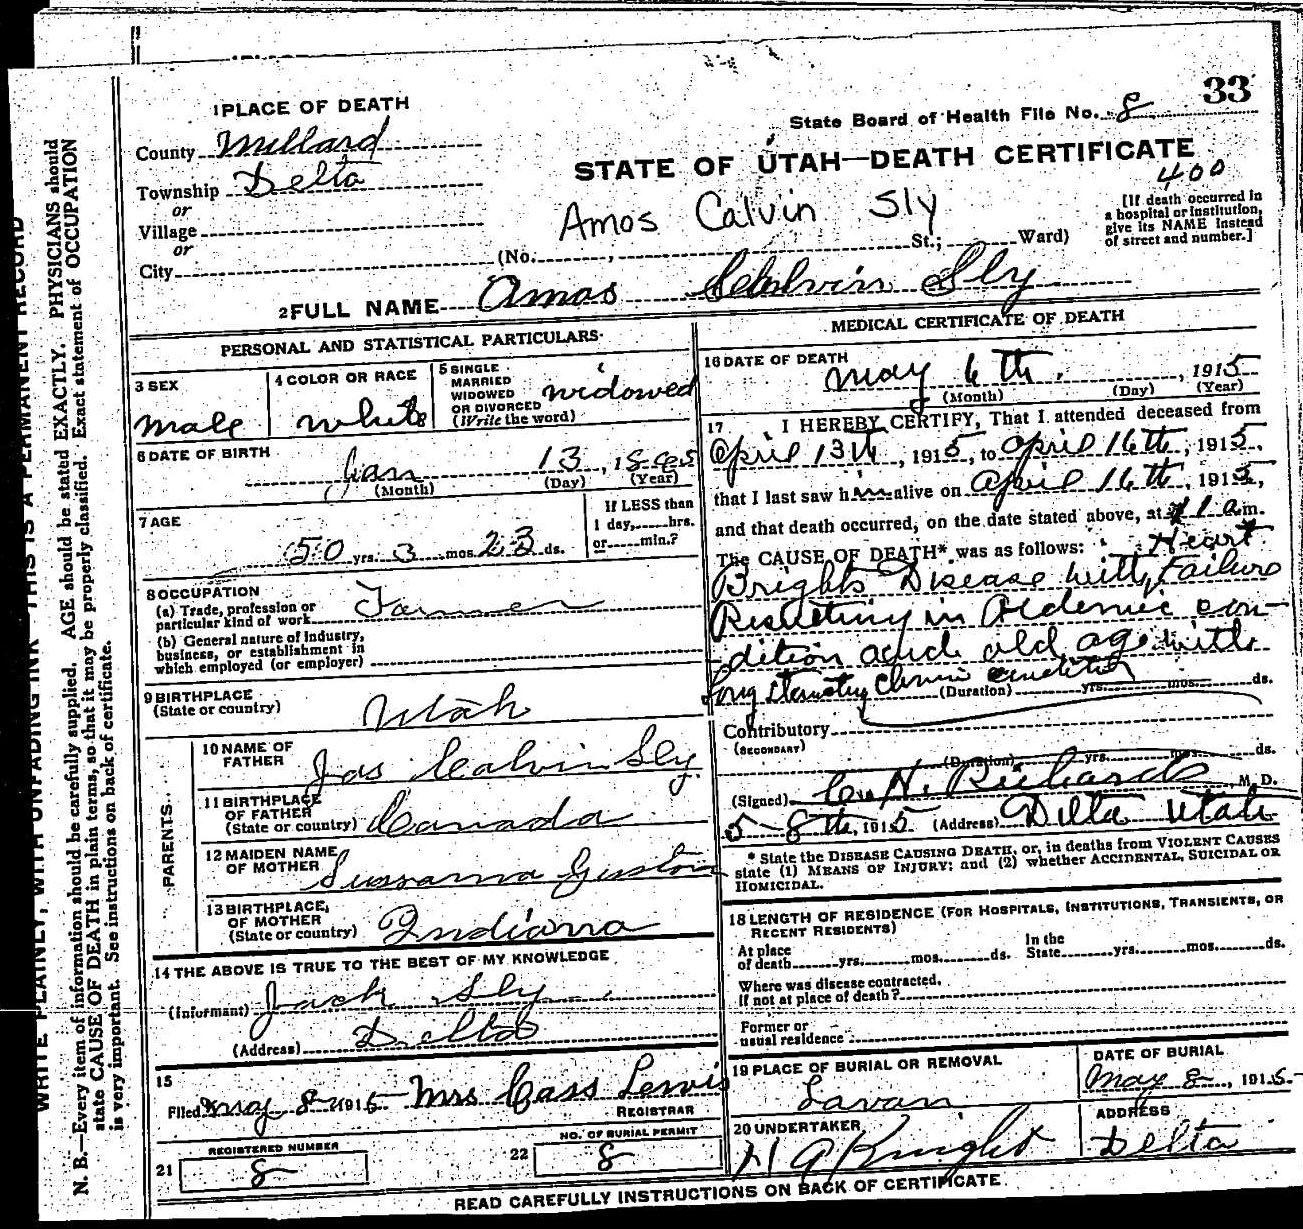 33
1 PLACE OF DEATH
State Board of Health File No. 8
County Millard
STATE OF UTAH—DEATH CERTIFICATE
Township Delta
400
or
Village
Amos Calvin Sly
[If death occurred in
a hospital or institution,
give its NAME instead
of street and number.]
or
City (No. , St.; Ward)
2 FULL NAME Amos Calvin Sly
PERSONAL AND STATISTICAL PARTICULARS
3 SEX
male
4 COLOR OR RACE
white
5 SINGLE
MARRIED
WIDOWED
OR DIVORCED
(Write the word)
widowed
6 DATE OF BIRTH
Jan 13, 1865
(Month) (Day) (Year)
7 AGE
50 yrs. 3 mos. 23 ds.
If LESS than
1 day, hrs.
or min.?
8 OCCUPATION
(a) Trade, profession or
particular kind of work Farmer
(b) General nature of industry,
business, or establishment in
which employed (or employer)
9 BIRTHPLACE
(State or country) Utah
PARENTS
10 NAME OF
FATHER Jas Calvin Sly
11 BIRTHPLACE
OF FATHER
(State or country) Canada
12 MAIDEN NAME
OF MOTHER Sussanna Guston
13 BIRTHPLACE
OF MOTHER
(State or country) Indiana
14 THE ABOVE IS TRUE TO THE BEST OF MY KNOWLEDGE
(Informant) Jack Sly
(Address) Delta
15
Filed May 8 1915 Mrs Cass Lewis
REGISTRAR
21 REGISTERED NUMBER
8
22 NO. OF BURIAL PERMIT
8
MEDICAL CERTIFICATE OF DEATH
16 DATE OF DEATH
May 6th, 1915
(Month) (Day) (Year)
17 I HEREBY CERTIFY, That I attended deceased from
April 13th, 1915, to April 16th, 1915,
that I last saw him alive on April 16th, 1915,
and that death occurred, on the date stated above, at 1 a.m.
The CAUSE OF DEATH* was as follows: Heart
Brights Disease with failure
Resulting in con-
dition and old age with
long standing chronic condition
(Duration) yrs. mos. ds.
Contributory
(SECONDARY)
(Duration) yrs. mos. ds.
(Signed) Richards M. D.
5-8th, 1915 (Address) Delta Utah
* State the DISEASE CAUSING DEATH, or, in deaths from VIOLENT CAUSES
state (1) MEANS OF INJURY; and (2) whether ACCIDENTAL, SUICIDAL OR
HOMICIDAL.
18 LENGTH OF RESIDENCE (FOR HOSPITALS, INSTITUTIONS, TRANSIENTS, OR
RECENT RESIDENTS)
At place
of death yrs. mos. ds. In the
State yrs. mos. ds.
Where was disease contracted,
if not at place of death?
Former or
usual residence
19 PLACE OF BURIAL OR REMOVAL
Lavan
DATE OF BURIAL
May 8, 1915
20 UNDERTAKER
H A Knight
ADDRESS
Delta
READ CAREFULLY INSTRUCTIONS ON BACK OF CERTIFICATE
WRITE PLAINLY, WITH UNFADING INK—THIS IS A PERMANENT RECORD
N. B.—Every item of information should be carefully supplied. AGE should be stated EXACTLY. PHYSICIANS should
state CAUSE OF DEATH in plain terms, so that it may be properly classified. Exact statement of OCCUPATION
is very important. See instructions on back of certificate.